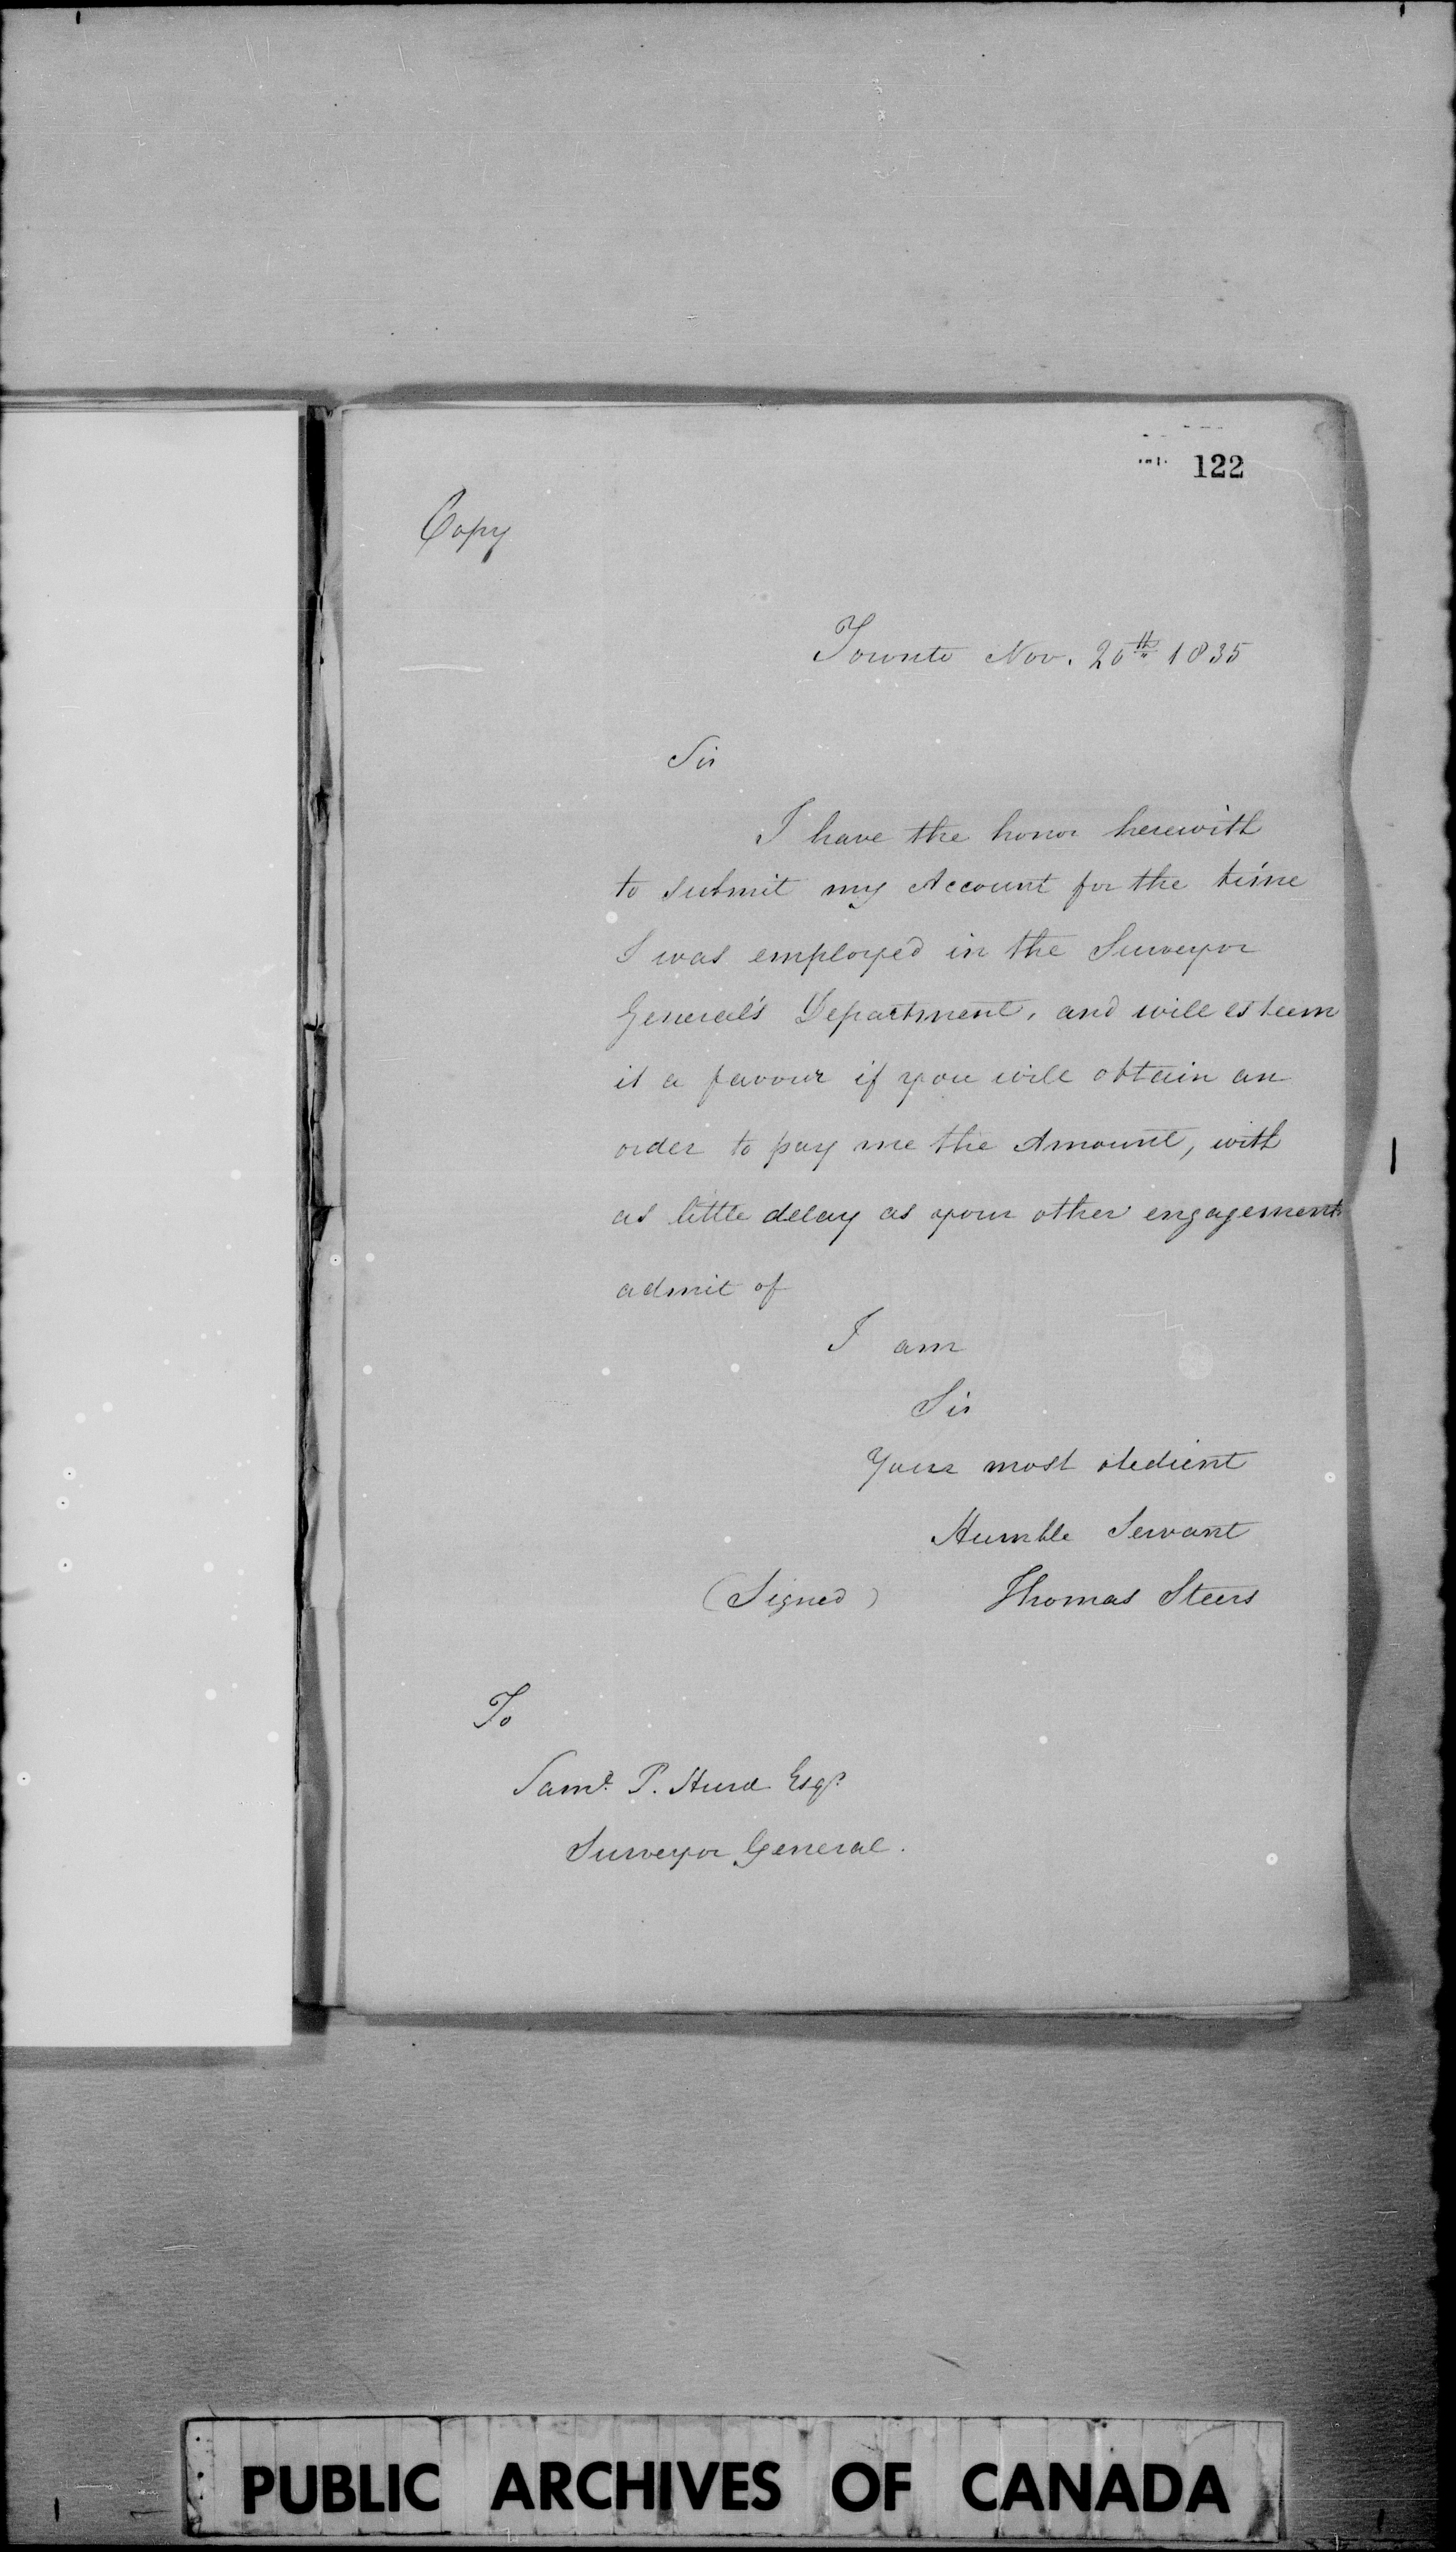 122
Copy
Toronto Nov. 20th 1835
Sir
I have the honor herewith
to submit my Account for the time
I was employed in the Surveyor
General's Department, and will esteem
it a favour if you will obtain an
order to pay me the Amount, with
as little delay as your other engagements
admit of
I am
Sir
Your most obedient
Humble Servant
(Signed) Thomas Steers
To
Saml. P. Hurd Esqr.
Surveyor General.
PUBLIC ARCHIVES OF CANADA